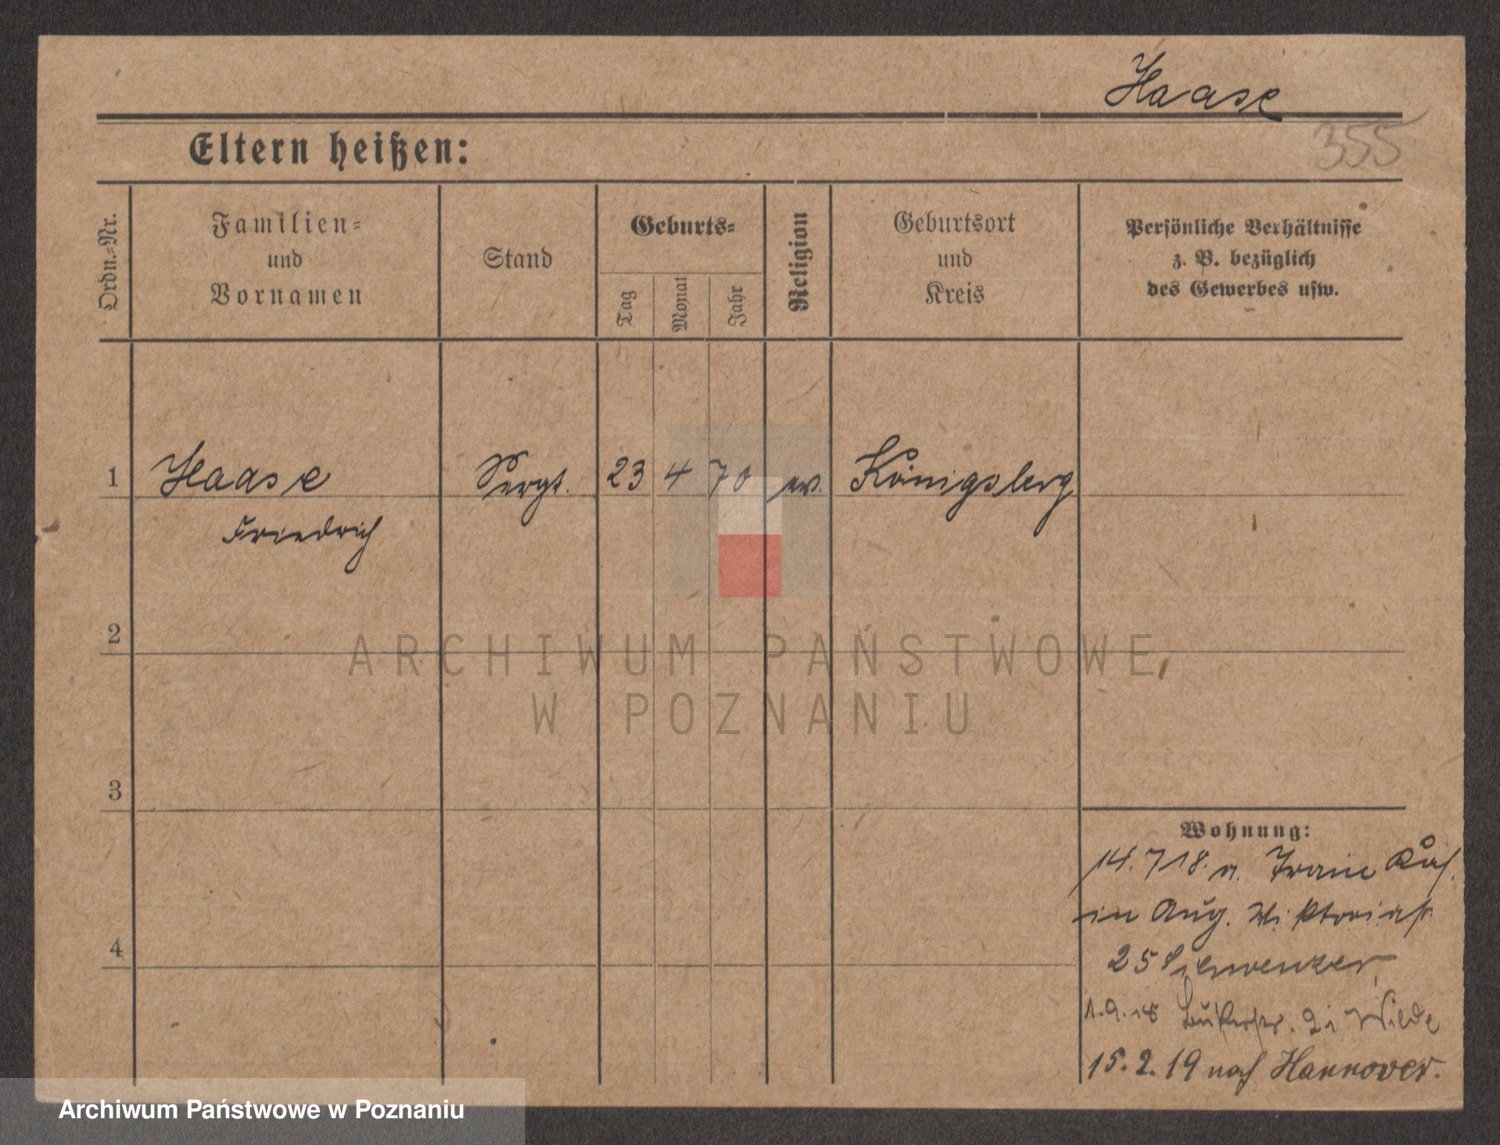 Haase
355
Eltern heißen:
Ordn.-Nr.
Familien-
und
Vornamen
Stand
Geburts-
Tag
Monat
Jahr
Religion
Geburtsort
und
Kreis
Persönliche Verhältnisse
z. B. bezüglich
des Gewerbes usw.
1 Haase Sergt. 23 4 70 ev. Königsberg
Friedrich
2
ARCHIWUM PAŃSTWOWE
W POZNANIU
3
Wohnung:
14.7 18. a.
in Aug. Viktoriastr.
4
25
1.9.18 Wilde
15.2.19 nach Hannover.
Archiwum Państwowe w Poznaniu